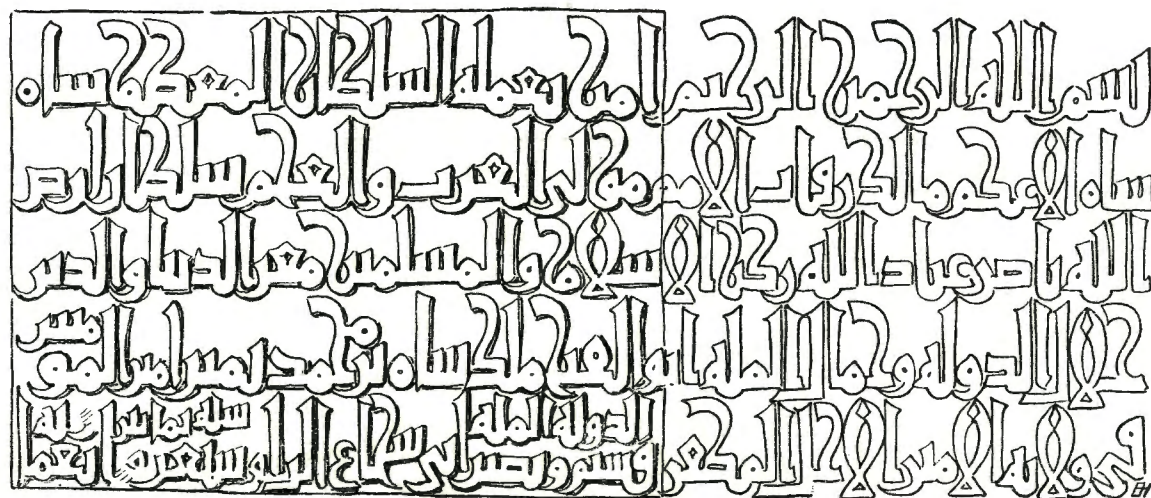 بسم الله الرحمن الرحيم امر بعمله السلطان المعظم شاه
شاه الاعظم مالك رقاب الامم مولى العرب والعجم سلطان ارض
الله ناصر عباد الله ركن الاسلام والمسلمين معز الدنيا والدين
جلال الدولة وجمال الملة ابو الفتح ملك شاه بن محمد يمين امير المومنين
في ولاية الامير الاجل المظفر قسيم الدولة ونصير الملة ابي شجاع